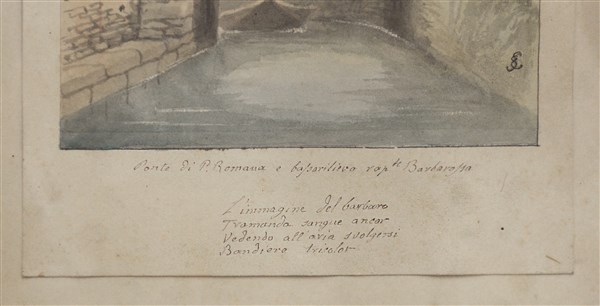 Ponte di P. Romana e bassorilievo rap.te Barbarossa
L'immagine del barbaro
Tramanda sangue ancor
Vedendo all'aria svolgersi
Bandiere tricolor